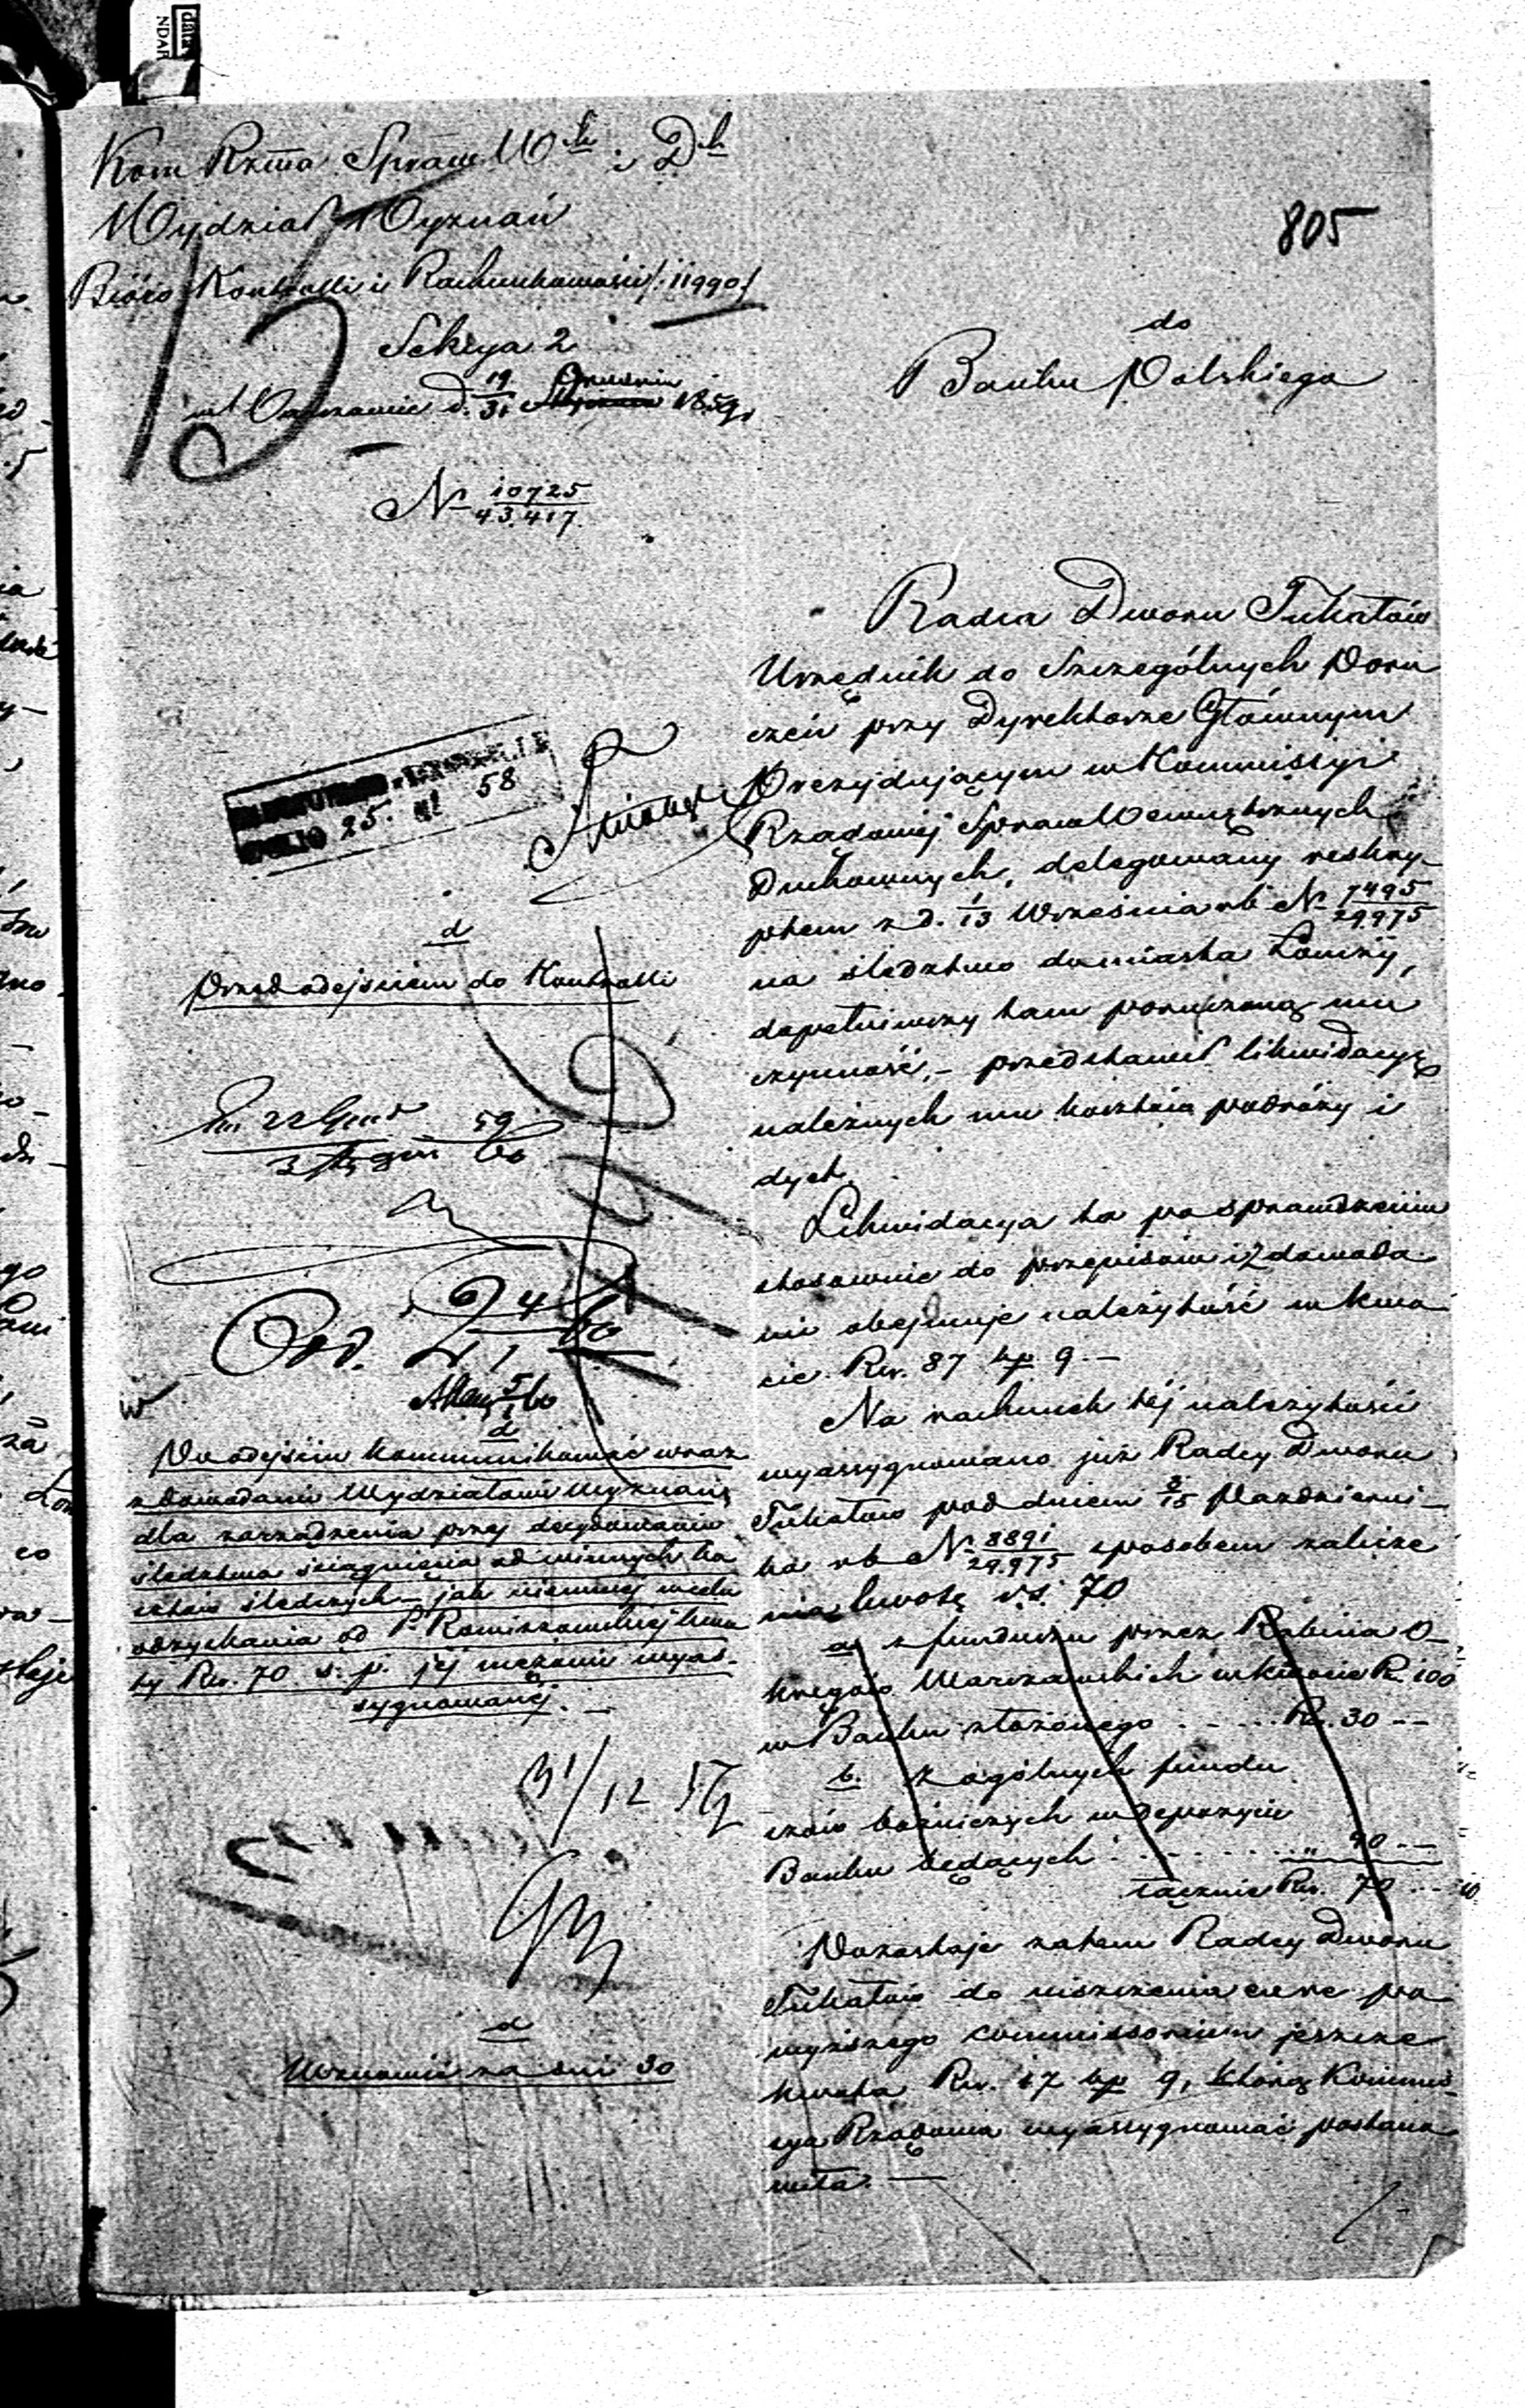 805
Kom Rzwa Spraw W. i D.h
Wydział Wyznań
Bióro Kontrolli i Rachunkowości /:11990:/
Sekcya 2
w Warszawie d. 19/31 Grudnia 1859 r
N 10725/43.417.
do
Banku Polskiego
Radca Dworu Tukałów
Urzędnik do Szczególnych Poru
czeń przy Dyrektorze Głównym
Prezydującym w Kommissyi
Rządowej Spraw Wewnętrznych
Duchownych, delegowany reskry-
ptem z d. 1/13 Września rb N 7495/29.975
na śledztwo do miasta Łomży,
dopełniwszy tam poruczoną mu
czynność, – przedstawił likwidacyę
należnych mu kosztów podróży i
dyet.
Likwidacya ta po sprawdzeniu
stosownie do przepisów i z dowoda
mi obejmuje należytość w kwo
cie Rsr. 87 kp 9 –
Na rachunek tej należytości
wyassygnowano już Radcy Dworu
Tukałow pod dniem 3/15 Październi-
ka rb N. 8891/29.975 sposobem zalicze
nia kwotę r.s. 70
a. z funduszu przez Rabina O-
kręgów Warszawskich w kwocie Rs. 100
w Banku złożonego . . . . . Rs. 30 --
b. z ogólnych fundu
szów bóżniczych w depozycie
Banku będących . . . . . . . " 40 --
łącznie Rsr. 70 --
Pozostaje zatem Radcy Dworu
Tukałow do uiszczenia
wyższego commissorium jeszcze
kwota Rsr. 17 kp 9, którą Kommis-
sya Rządowa wyassygnować postano
wiła. —
25. 58
d
Przed odejściem do Kontrolli
59
60
Odd.
d
Po odejściu kommunikować wraz
z dowodami Wydziałowi Wyznań
dla zarządzenia przy decydowaniu
śledztwa ściągnięcia od winnych ko
sztów śledczych – jak niemniej
odzyskania od P. kwo
ty Rsr. 70 s. p. jej mężowi wyas-
sygnowanej. –
31/12 59
d
Wznowić za dni 30